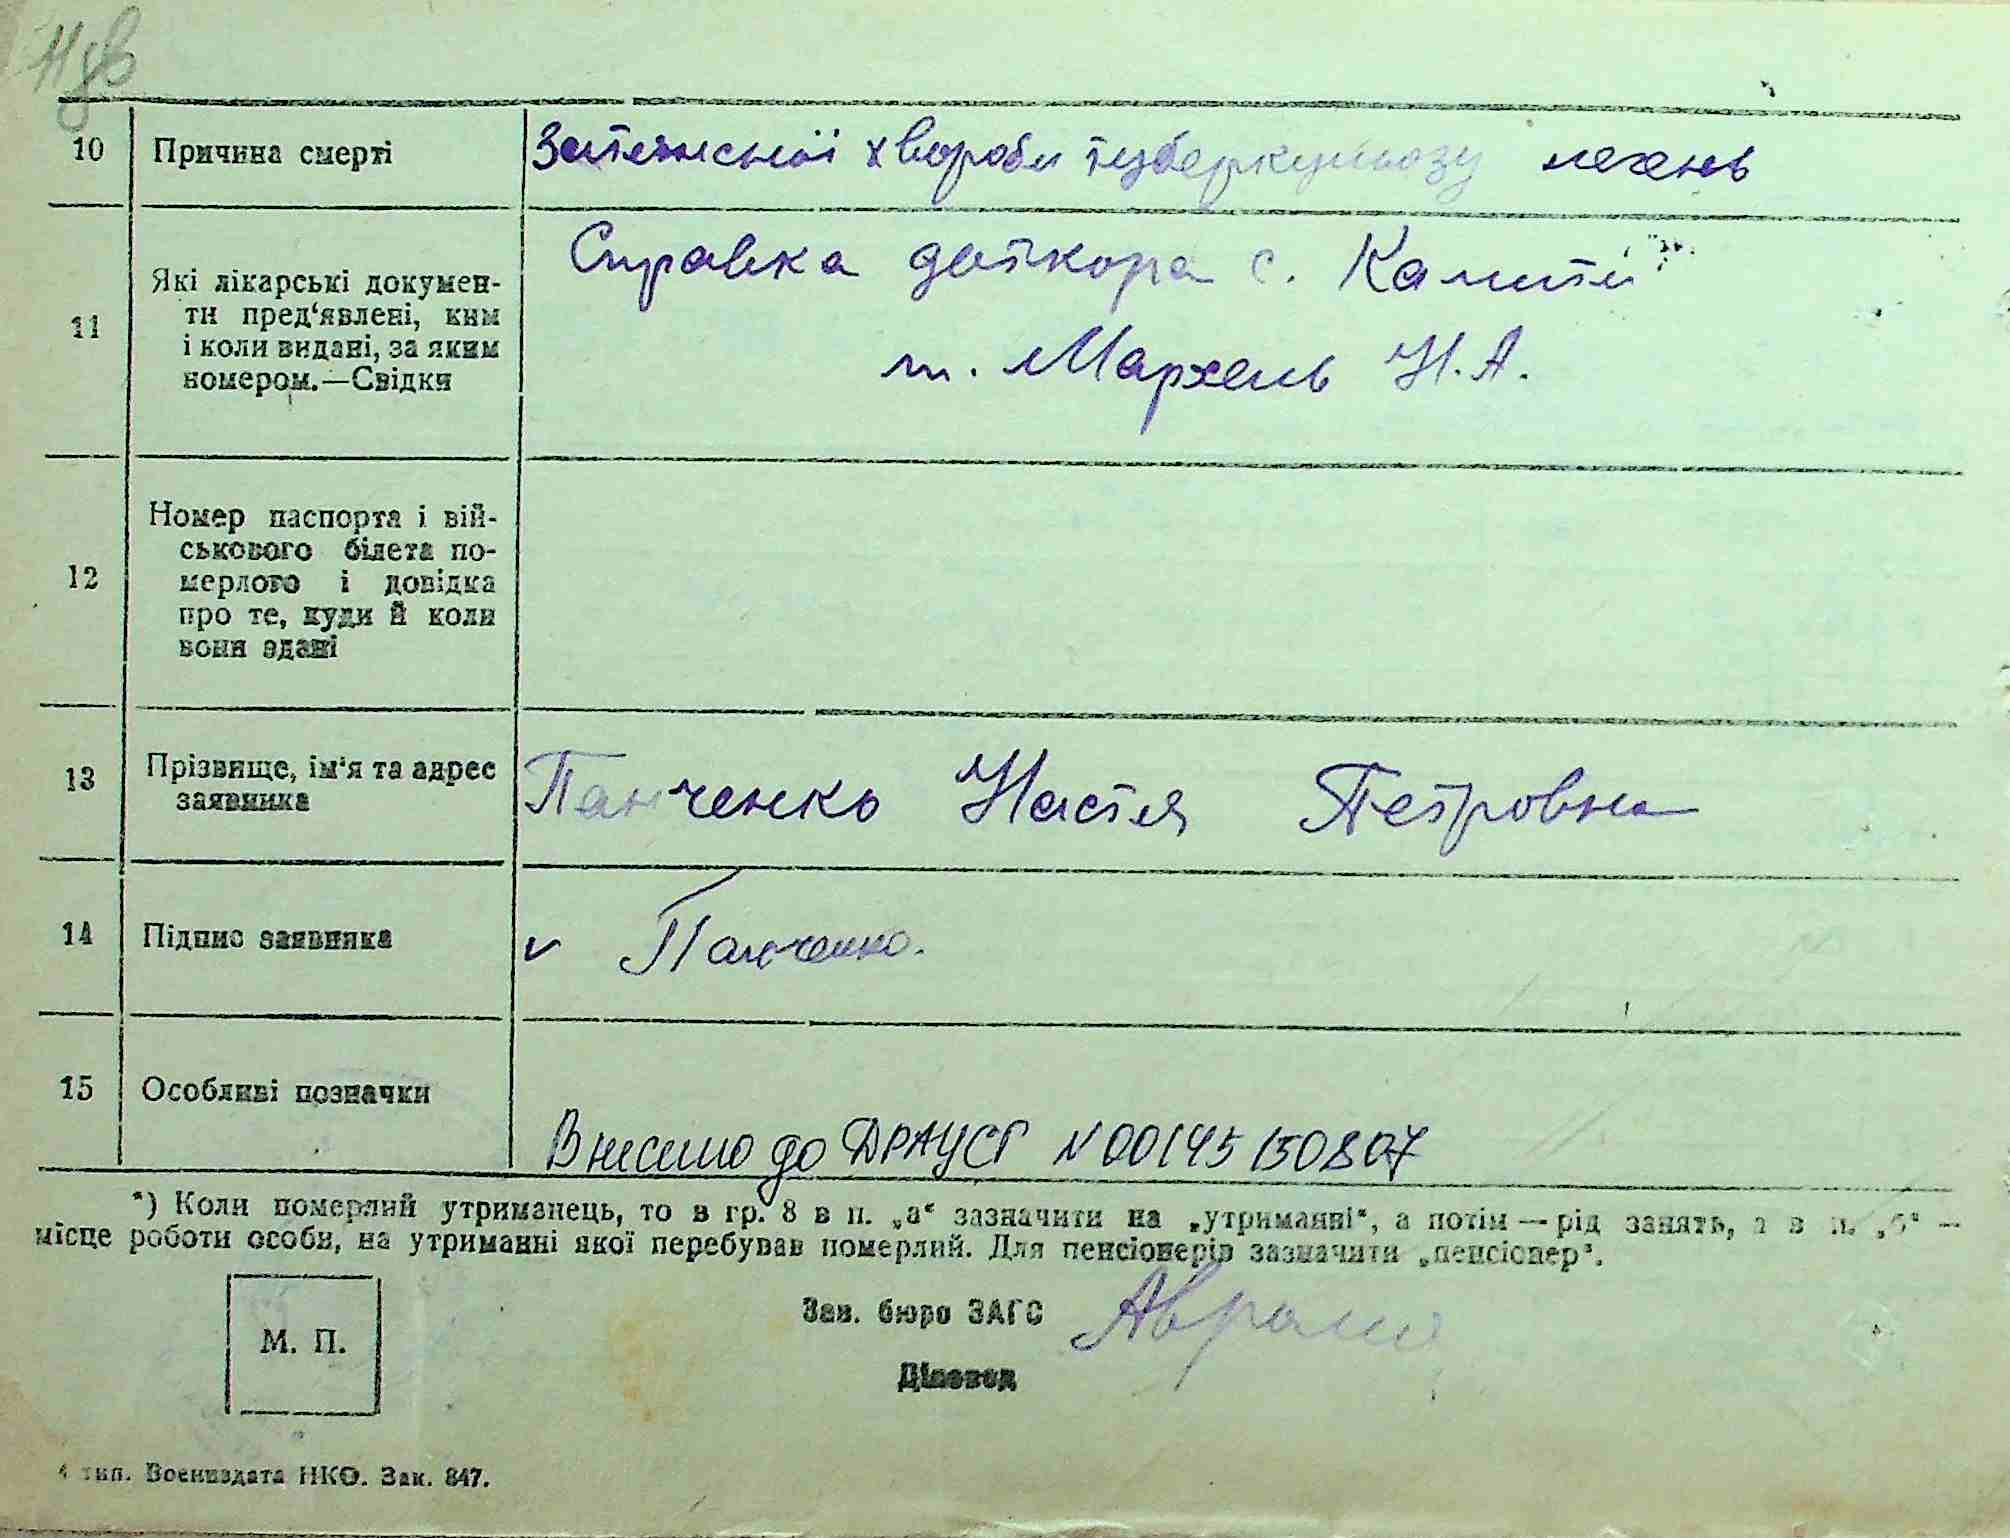 11зв
10 Причина смерті Затяжної хвороби туберкульозу легень
11 Які лікарські докумен-
ти пред‘явлені, ким
і коли видані, за яким
номером.—Свідки
Справка доткора с. Калити
т. Мархель Н. А.
12 Номер паспорта і вій-
ськового білета по-
мерлого і довідка
про те, куди й коли
вони здані
13 Прізвище, ім‘я та адрес
заявника
Панченко Настя Петровна
14 Підпис заявника v Панченко.
15 Особливі позначки
Внесено до ДРАЦСГ N 00145150807
*) Коли померлий утриманець, то в гр. 8 в п. „а“ зазначити на „утриманні“, а потім — рід занять, а в п. „б“ —
місце роботи особи, на утриманні якої перебував померлий. Для пенсіонерів зазначити „пенсіонер“.
М. П.
Зав. бюро ЗАГС
Діловод
4 тип. Воениздата НКО. Зак. 847.